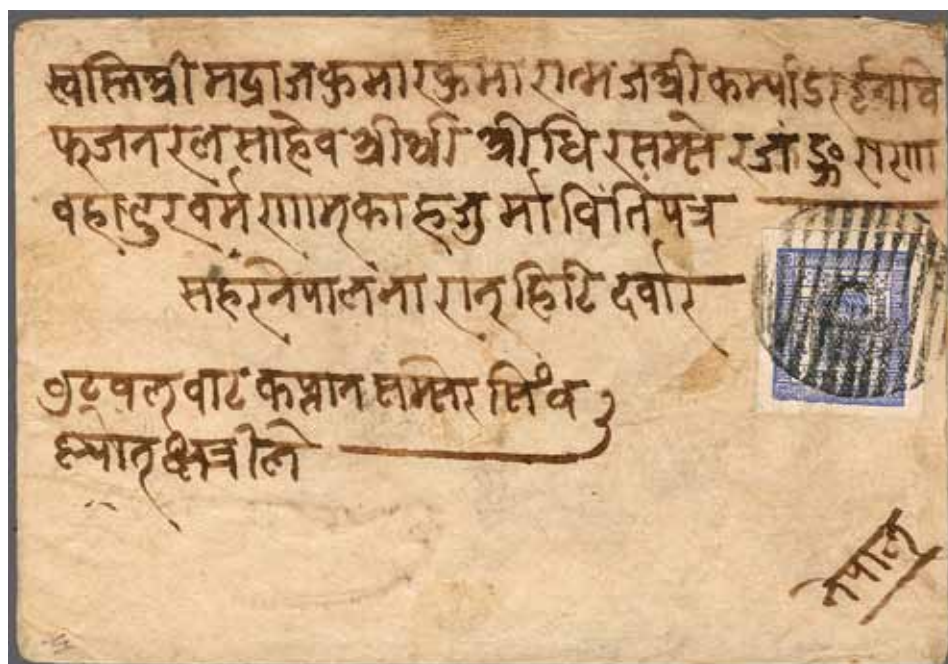 स्वस्ति श्री मद्राजकुमारकुमारात्मज श्री कम्याण्डर इनचि
फ जनरल साहेव श्री श्री श्री धिर सम्सेर जङ्ग राणा
वहादुर वर्मणाम् का हजुर्मा विंतिपत्र
सहर नेपाल नारान् हिटि दर्वार
वुट्वल् वाट कप्तान सम्सेर सिंव
छेत्रीले
नेपाल्